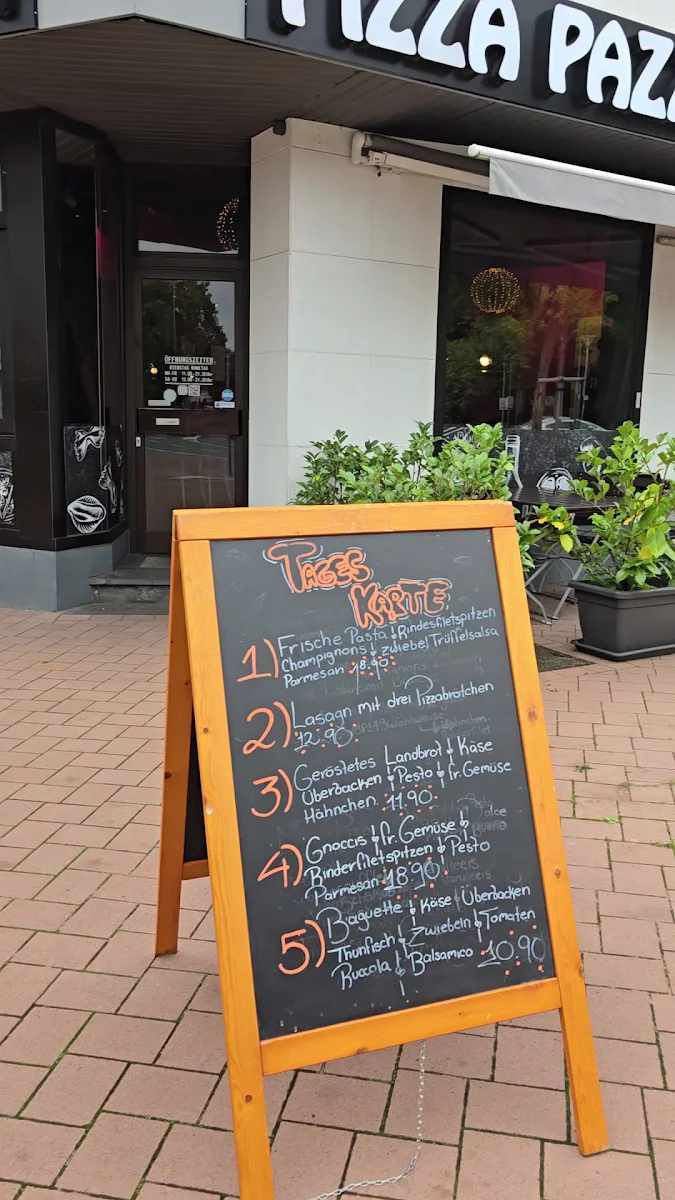 PIZZA PAZ
ÖFFNUNGSZEITEN
DIENSTAG RUHETAG
Tages
Karte
1) Frische Pasta Rindesfiletspitzen
Champignons zwiebel Trüffelsalsa
Parmesan 18.90
2) Lasagn mit drei Pizzabrötchen
12.90
3) Geröstetes Landbrot Käse
Überbacken Pesto fr. Gemüse
Hähnchen 11.90
4) Gnoccis fr. Gemüse
Rinderfiletspitzen Pesto
Parmesan 18.90
5) Baguette Käse Überbacken
Thunfisch Zwiebeln Tomaten
Ruccola Balsamico 10.90